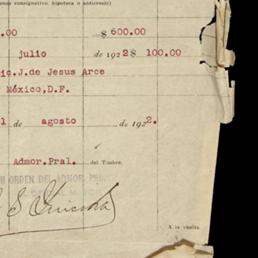 (censo consignativo, hipoteca o adicional)
.00 $ 600.00
julio de 1922 $ 100.00
ic. J. de Jesus Arce
México, D.F.
1 de agosto de 1922.
Admor. Pral. del Timbre.
ORDEN DEL ADMOR. PRAL.
A la vuelta.